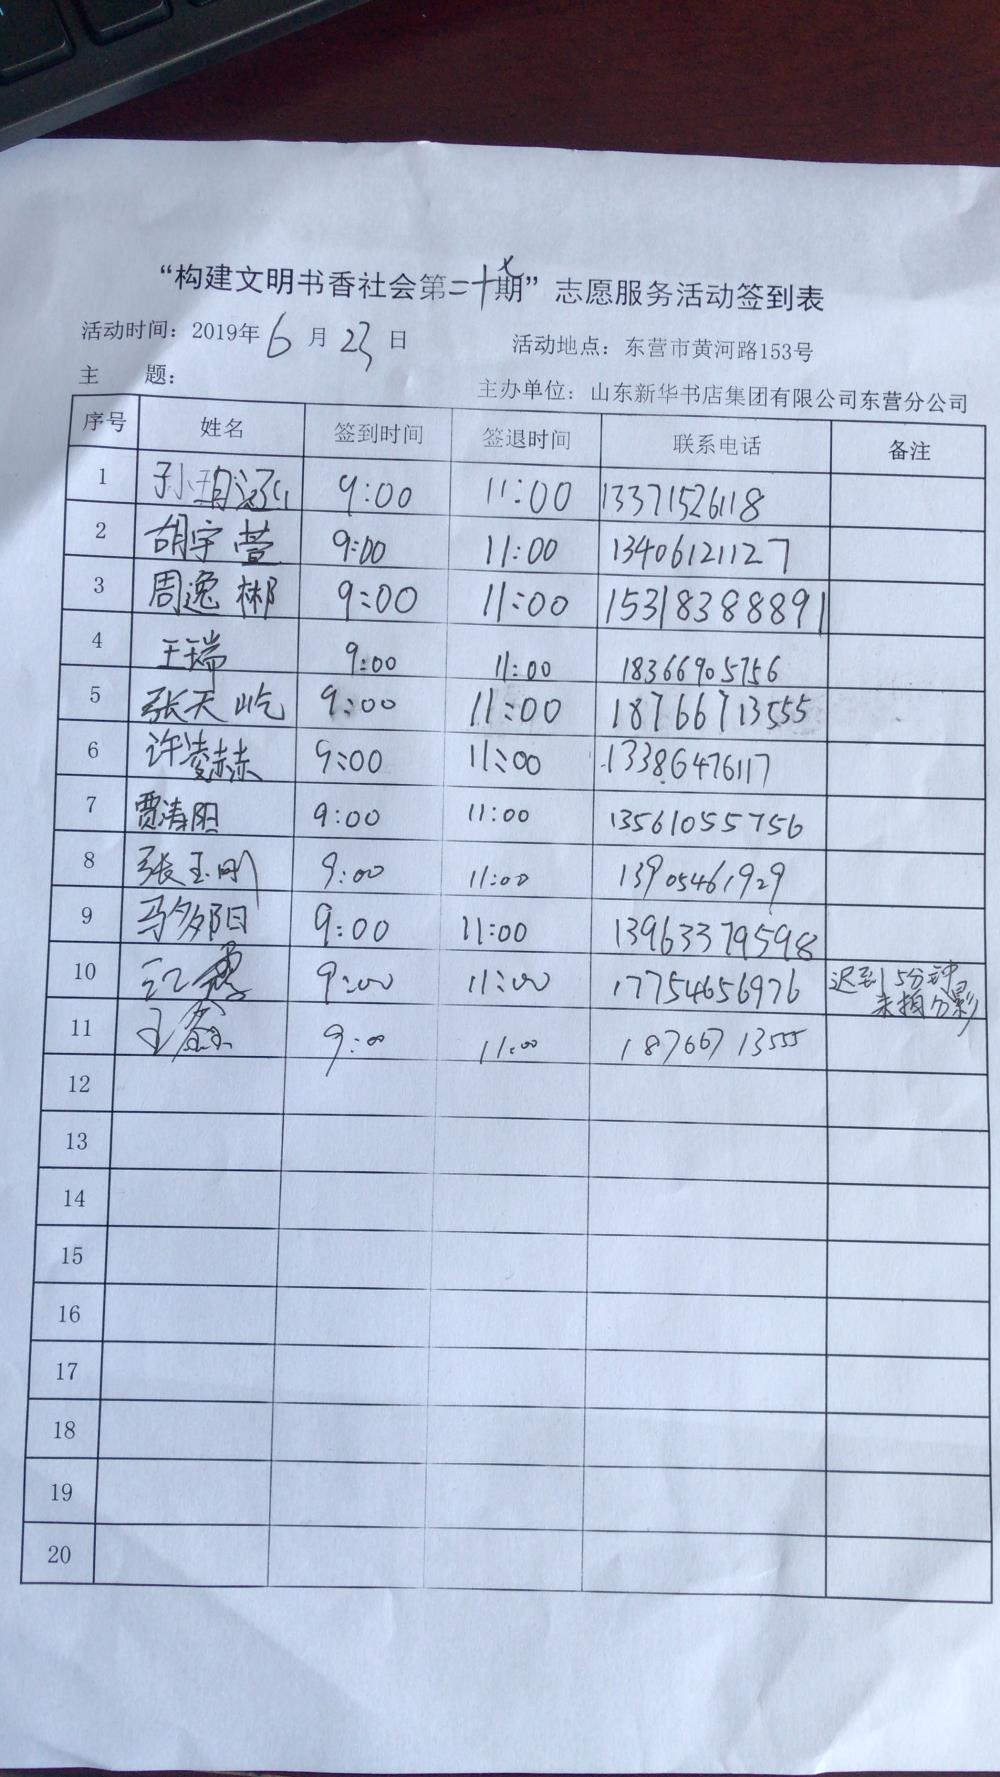 “构建文明书香社会第二十七期”志愿服务活动签到表
活动时间：2019年6月23日 活动地点：东营市黄河路153号
主 题：
主办单位：山东新华书店集团有限公司东营分公司
序号 姓名 签到时间 签退时间 联系电话 备注
1 9:00 11:00 13371526118
2 胡宇萱 9:00 11:00 13406121127
3 周逸彬 9:00 11:00 15318388891
4 王瑞 9:00 11:00 18366905756
5 张天屹 9:00 11:00 18766713555
6 许凌赫 9:00 11:00 13386476117
7 贾涛阳 9:00 11:00 13561055756
8 张玉刚 9:00 11:00 13905461929
9 马多阳 9:00 11:00 13963379598
10 9:00 11:00 17754656976 迟到15分钟
未摘分影
11 9:00 11:00 18766713555
12
13
14
15
16
17
18
19
20